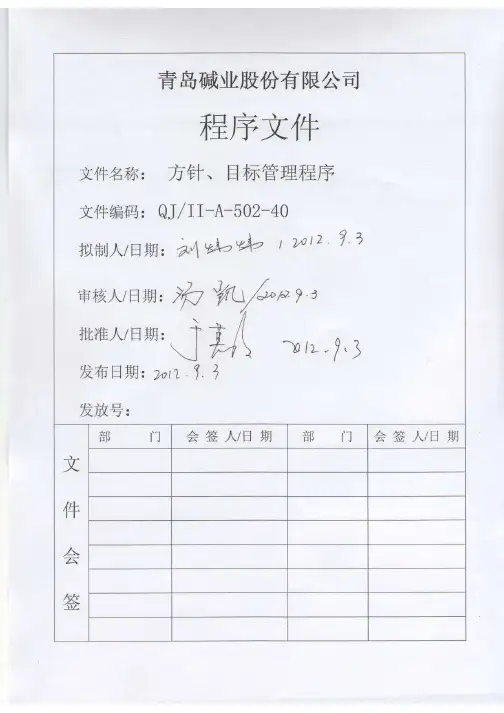 青岛碱业股份有限公司
程序文件
文件名称: 方针、目标管理程序
文件编码: QJ/II-A-502-40
拟制人/日期: 刘炜炜 / 2012.9.3
审核人/日期: 汤凯/2012.9.3
批准人/日期: 于 2012.9.3
发布日期: 2012.9.3
发放号:
部 门 会 签 人/日 期 部 门 会 签 人/日 期
文
件
会
签